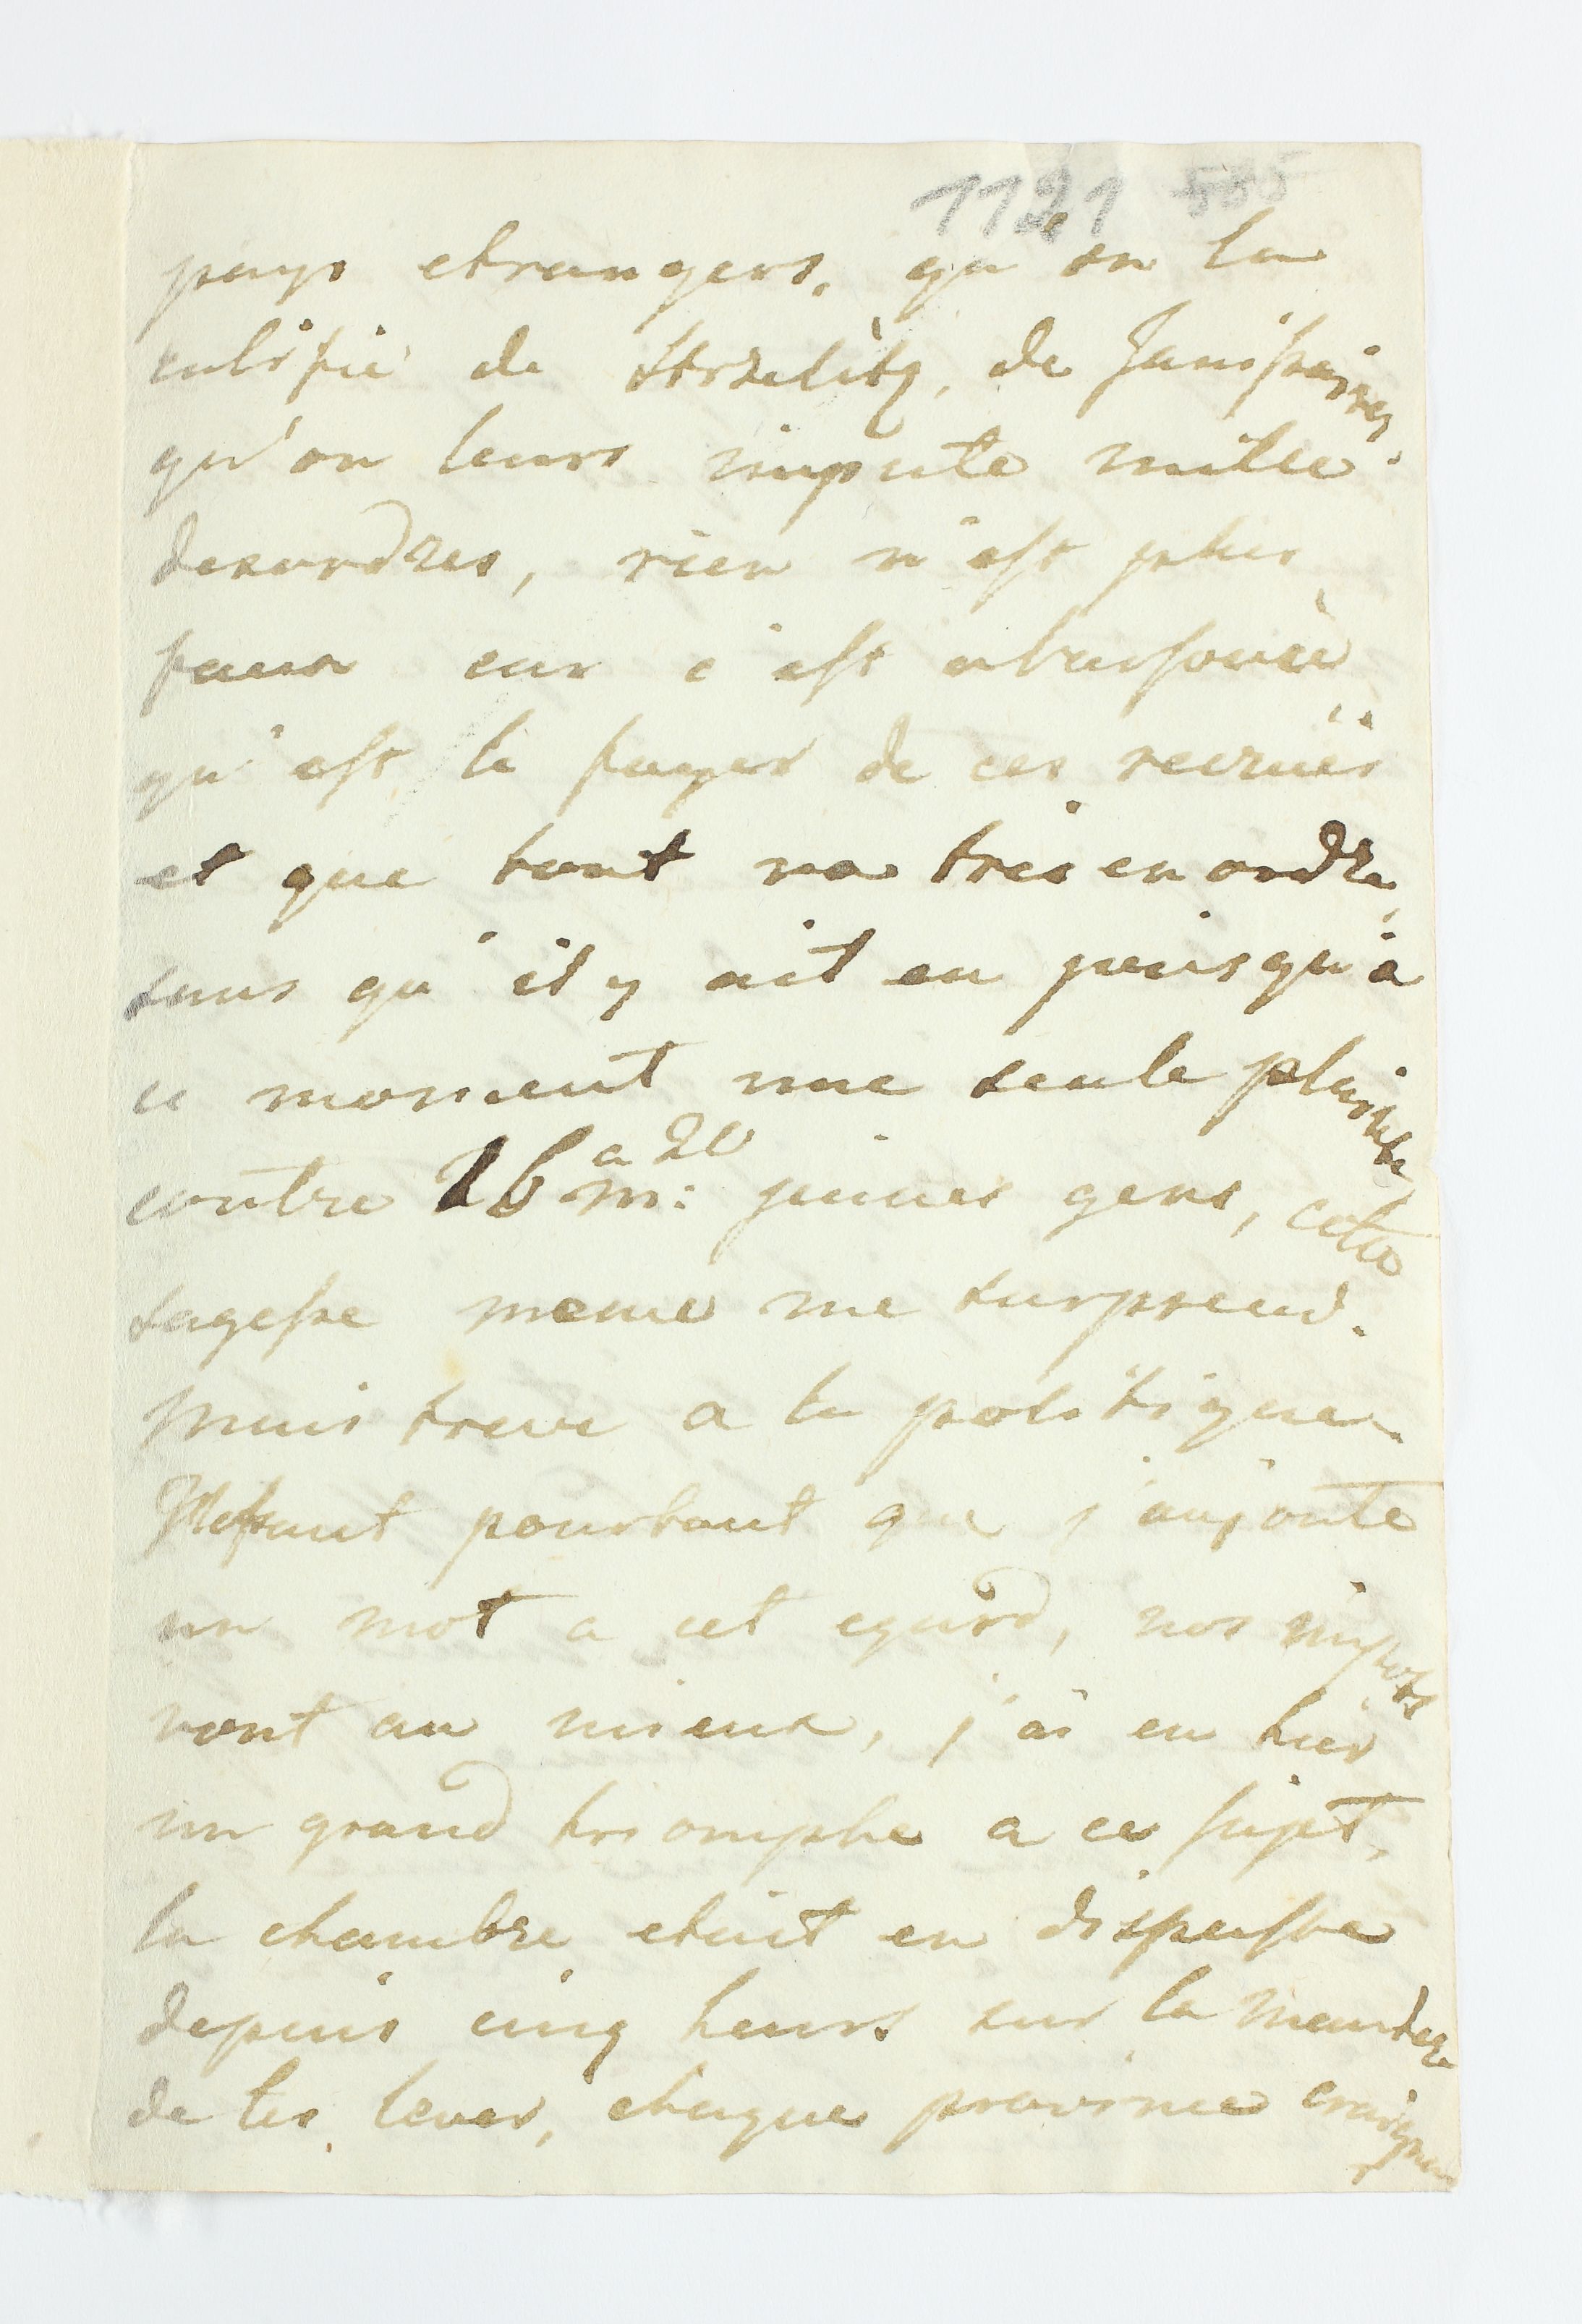 1121 535
pays etrangers, qu'on la
calisfié de Strzelitz, de Janissaires,
qu'on leurs impute mille
desordres, rien n'est plus
faux car c'est a
qu'est le foyer de ces recrues
et que tout va tres en ordre,
sans qu'il y ait eu jusqu'à
ce moment une seule plainte
contre 16 a 20 m: jeunes gens, cette
sagesse meme me surprend.
mais treve a la politique.
Il faut pourtant que j'aujoute
un mot a cet egard, nos impots
vont au mieux, j'ai eu hier
un grand triomphe a ce sujet,
la chambre etait en
depuis cinq heurs sur la maniere
de les lever, chaque province craigna